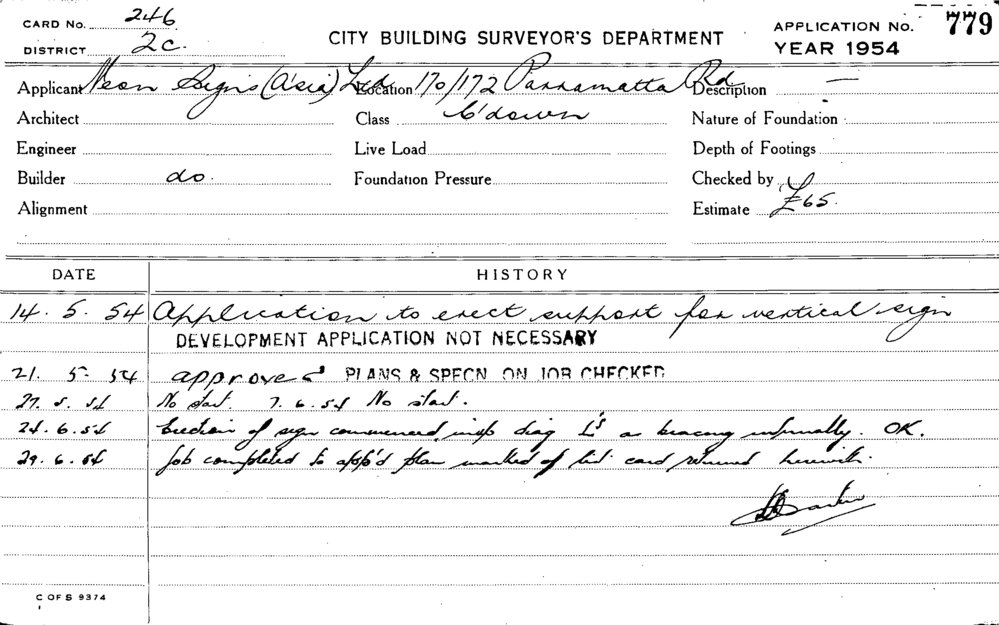 CARD No. 246
DISTRICT 2c.
CITY BUILDING SURVEYOR'S DEPARTMENT
APPLICATION No. 779
YEAR 1954
Applicant Neon Signs (A'sia) Ltd Location 170/172 Parramatta Rd Description —
Architect Class C'down Nature of Foundation
Engineer Live Load Depth of Footings
Builder do. Foundation Pressure Checked by
Alignment Estimate £65.
DATE HISTORY
14. 5. 54 Application to erect support for vertical sign
DEVELOPMENT APPLICATION NOT NECESSARY
21. 5. 54 approved PLANS & SPECN. ON JOB CHECKED
27. 5. 54 No start. 7. 6. 54 No start.
24. 6. 54 Erection of sign commenced insp diag L's as bracing internally. OK.
29. 6. 54 Job completed to app'd plan marked of list card returned herewith.
C OF S 9374